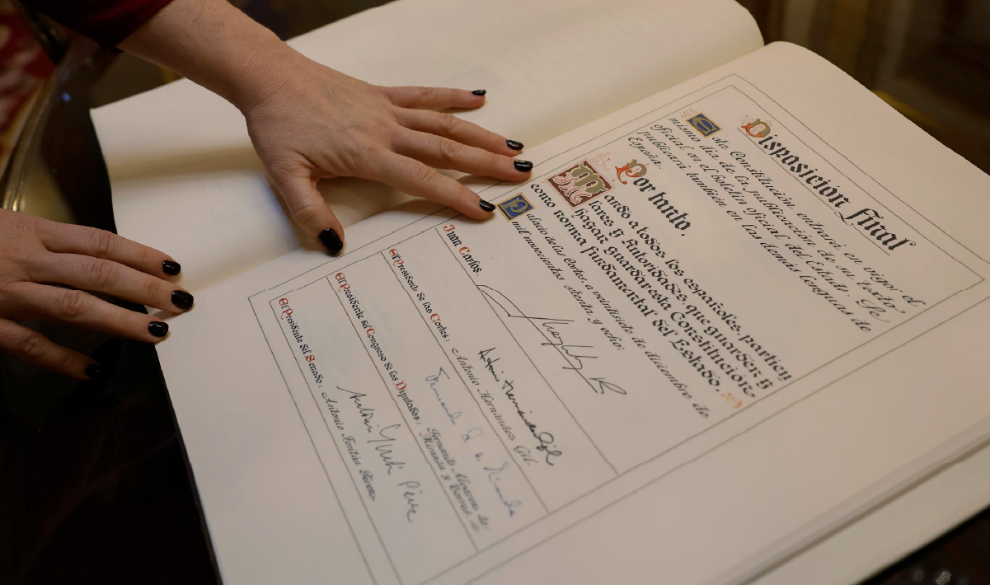 Disposición final
Esta Constitución entrará en vigor el
mismo día de la publicación de su texto
oficial en el boletín oficial del Estado. Se
publicará también en las demás lenguas de
España.
Por tanto,
Mando a todos los españoles, particu
lares y Autoridades, que guarden y
hagan guardar esta Constitución
como norma fundamental del Estado.
Palacio de las Cortes, a veintisiete de diciembre de
mil novecientos setenta y ocho.
Juan Carlos.
Juan Carlos R
El Presidente de las Cortes: Antonio Hernández Gil.
Antonio Hernández Gil
El Presidente del Congreso de los Diputados: Fernando Álvarez de
Miranda y Torres
El Presidente del Senado: Antonio Fontán Pérez
Antonio Fontán Pérez